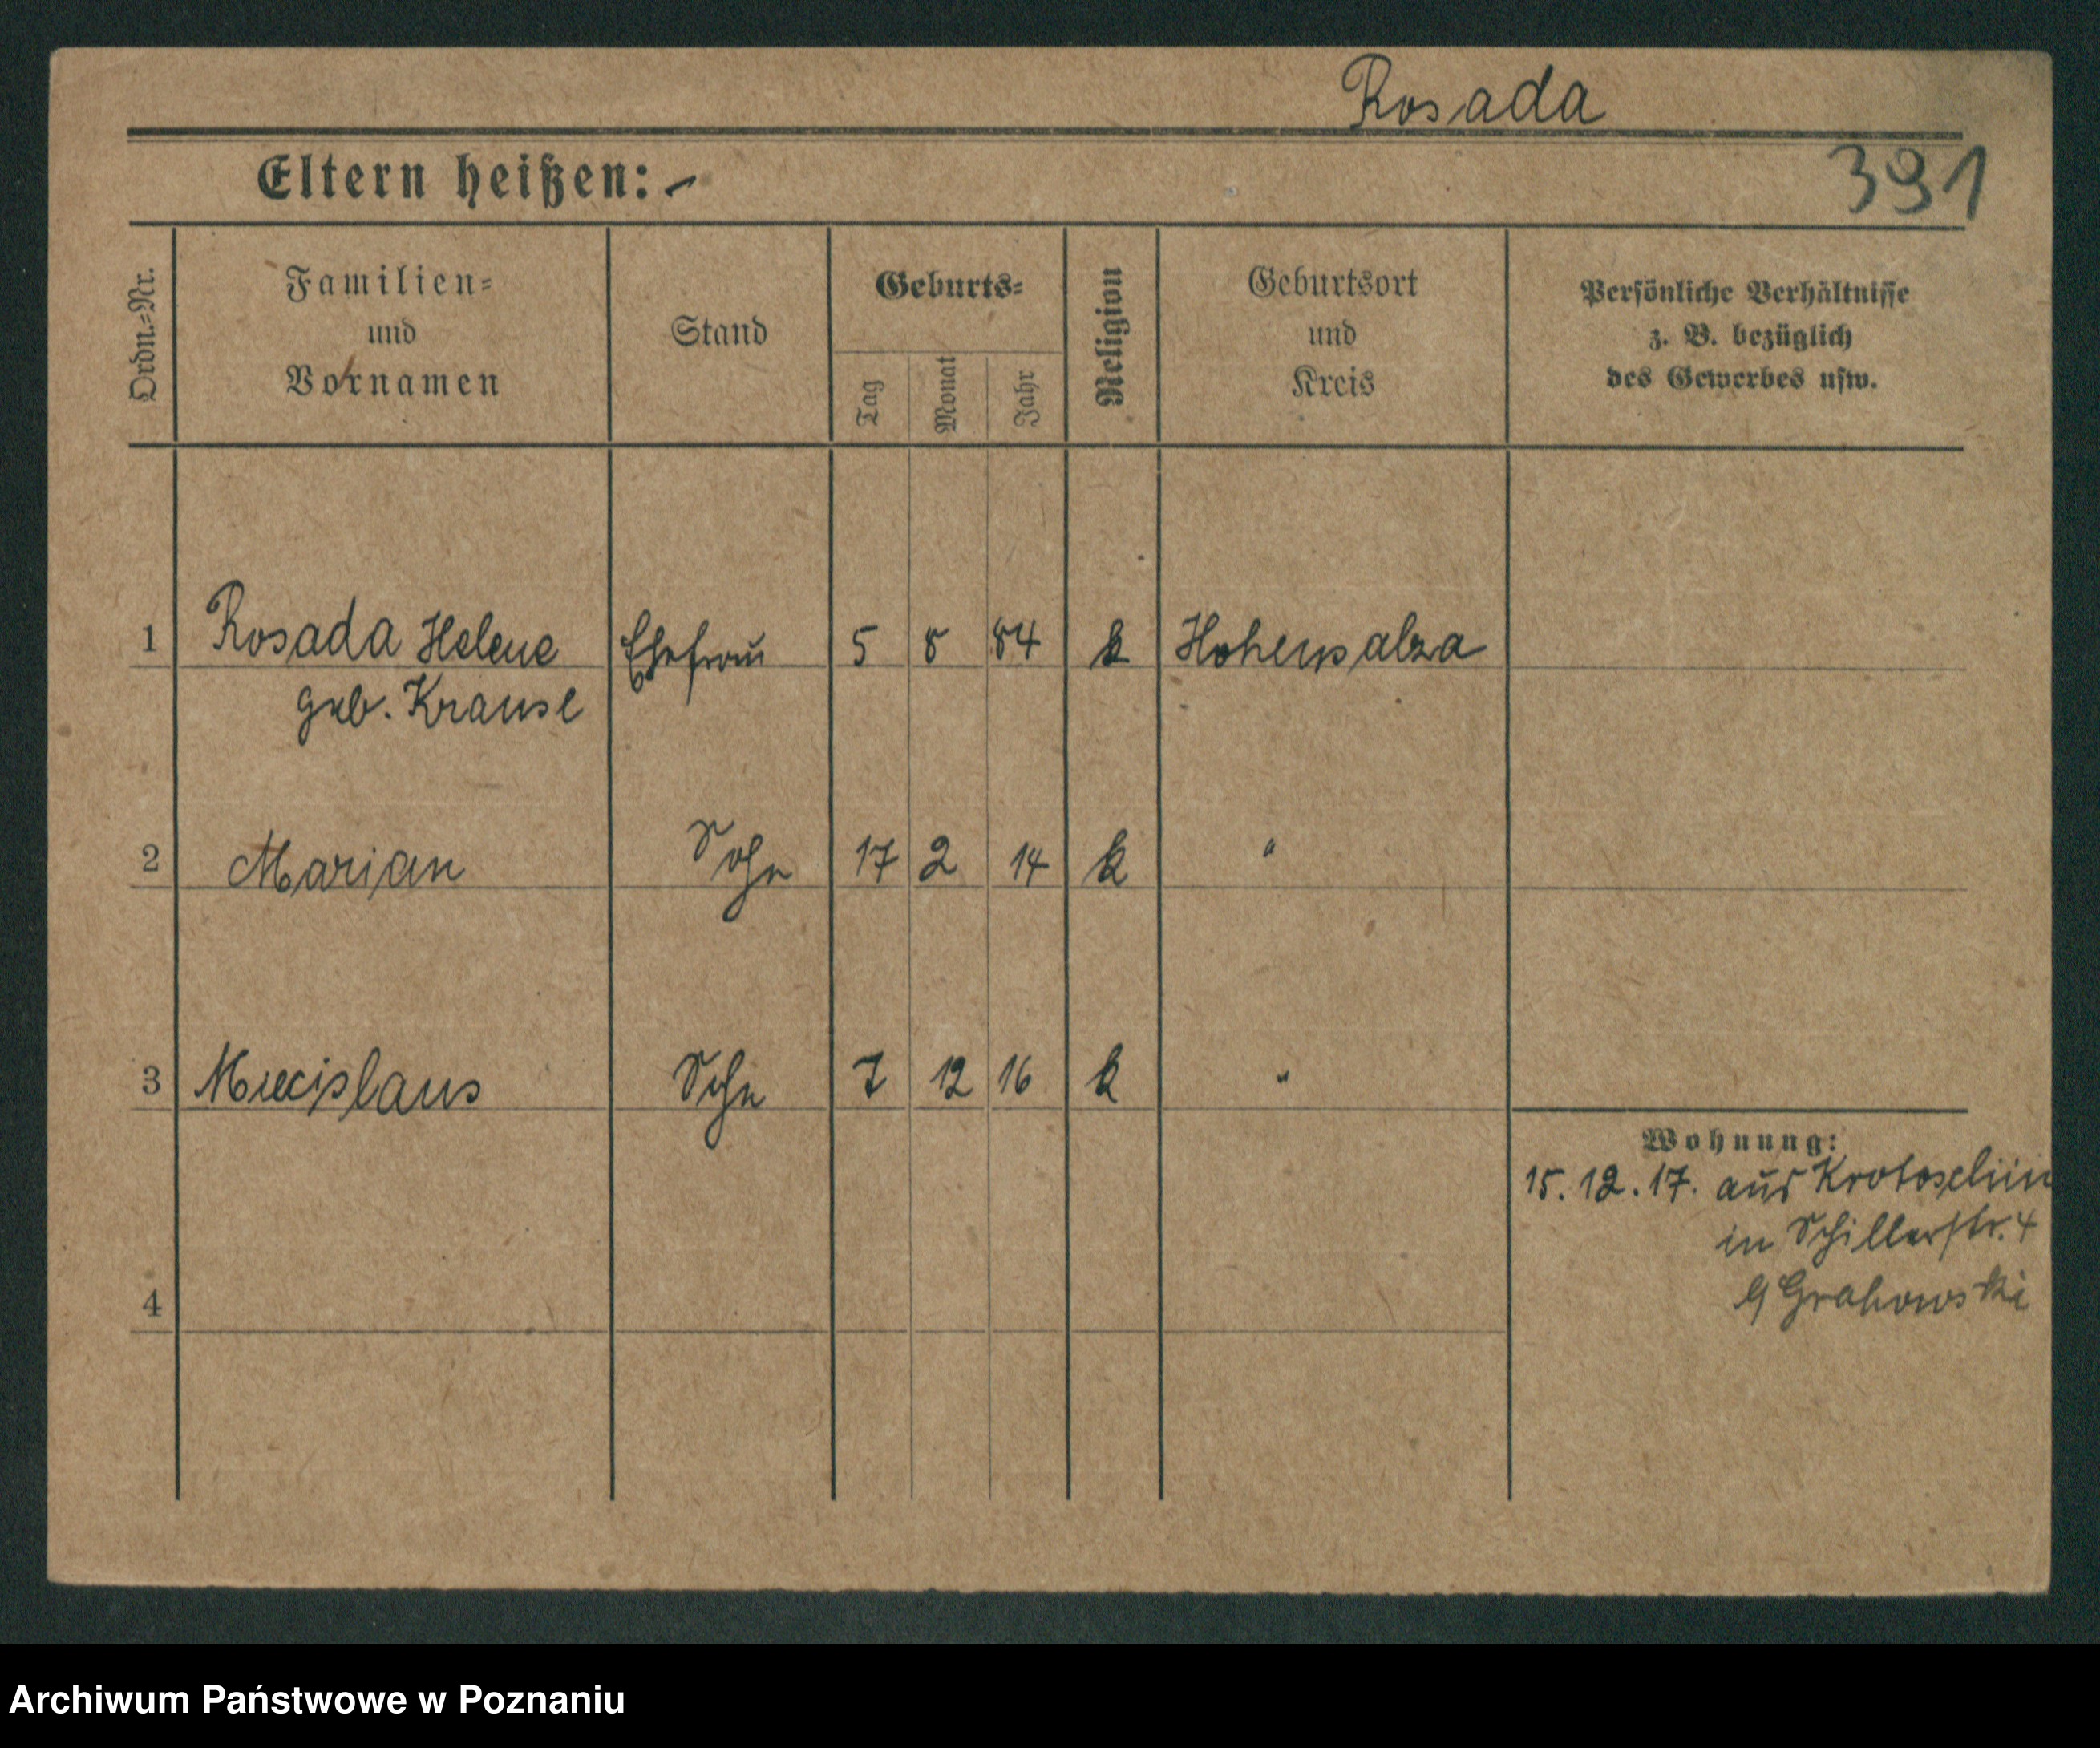 Rosada
391
Eltern heißen: -
Ordn.-Nr.
Familien-
und
Vornamen
Stand
Geburts-
Tag
Monat
Jahr
Religion
Geburtsort
und
Kreis
Persönliche Verhältnisse
z. B. bezüglich
des Gewerbes usw.
1 Rosada Helene Ehefrau 5 8 84 k Hohensalza
geb. Krause
2 Marian Sohn 17 2 14 k "
3 Miecislaus Sohn 7 12 16 k "
Wohnung:
15. 12. 17. aus Krotoschin
in Schillerstr. 4
Grabowski
4
Archiwum Państwowe w Poznaniu